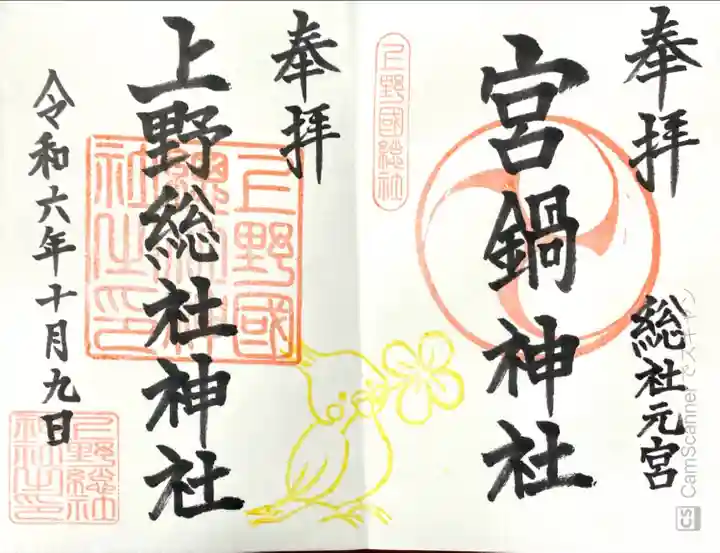 奉拝
総社元宮
宮鍋神社
上野國総社
奉拝
上野総社神社
上野國
総社神
社之印
令和六年十月九日
上野総社
神社之印
CS CamScanner でスキャン